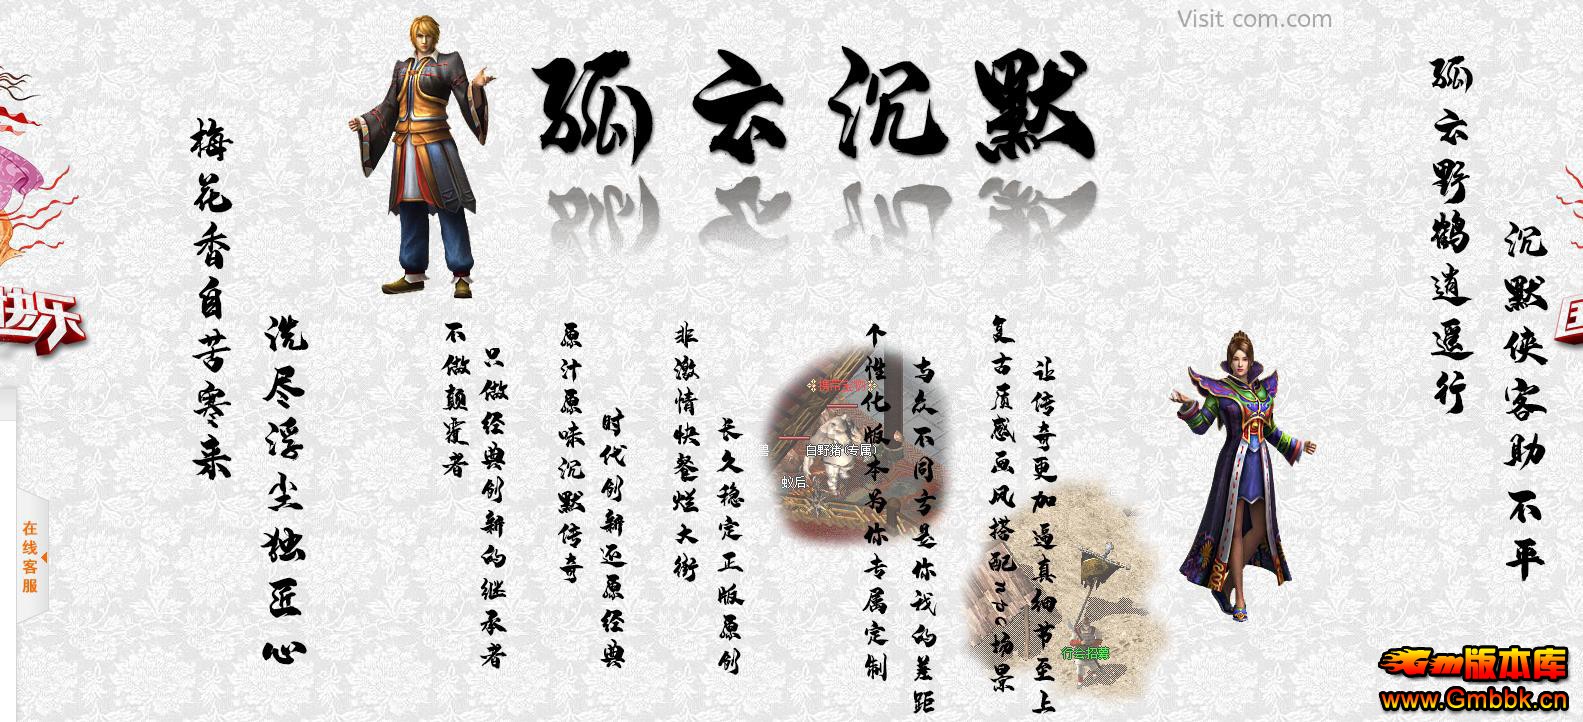 Visit com.com
孤云沉默
孤云野鹤逍遥行
沉默侠客助不平
梅花香自苦寒来
洗尽浮尘独匠心
不做颠覆者
只做经典创新的继承者
原汁原味沉默传奇
时代创新还原经典
非激情快餐烂大街
长久稳定正版原创
个性化版本为你专属定制
与众不同方是你我的差距
复古质感画风搭配npc场景
让传奇更加逼真细节至上
携带宝物
白野猪(专属)
蚁后
行会招募
快乐
国
在线客服
Gm版本库
www.Gmbbk.cn